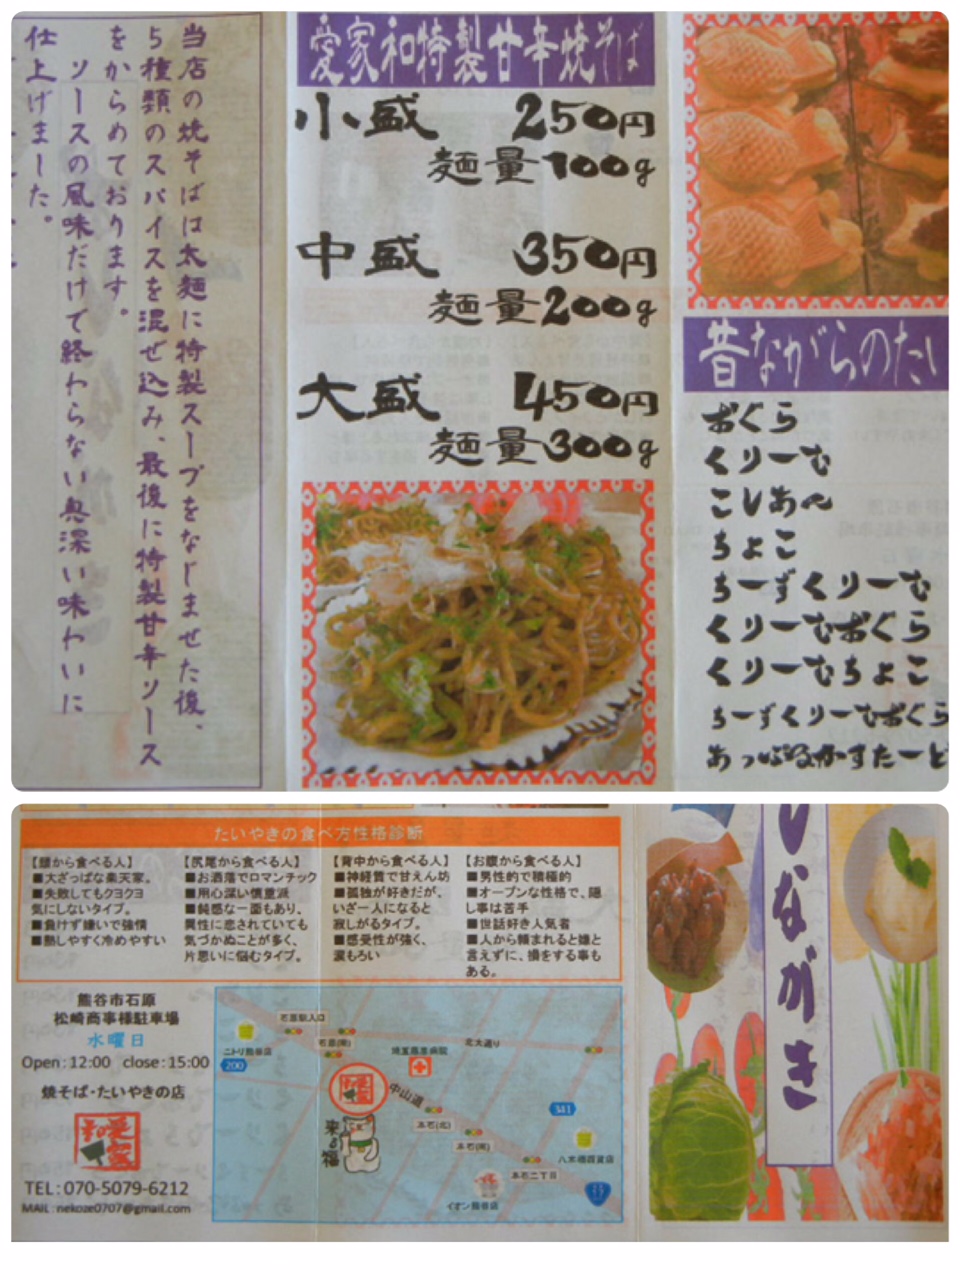 当店の焼そばは太麺に特製スープをなじませた後、
5種類のスパイスを混ぜ込み、最後に特製甘辛ソース
をからめております。
ソースの風味だけで終わらない奥深い味わいに
仕上げました。
愛家和特製甘辛焼そば
小盛 250円
麺量100g
中盛 350円
麺量200g
大盛 450円
麺量300g
昔ながらのたい
おぐら
くりーむ
こしあん
ちょこ
ちーずくりーむ
くりーむおぐら
くりーむちょこ
ちーずくりーむおぐら
あっぷるかすたーど
たいやきの食べ方性格診断
【頭から食べる人】
■大ざっぱな楽天家。
■失敗してもクヨクヨ
気にしないタイプ。
■負けず嫌いで強情
■熱しやすく冷めやすい
【尻尾から食べる人】
■お洒落でロマンチック
■用心深い慎重派
■鈍感な一面もあり、
異性に恋されていても
気づかぬことが多く、
片思いに悩むタイプ。
【背中から食べる人】
■神経質で甘えん坊
■孤独が好きだが、
いざ一人になると
寂しがるタイプ。
■感受性が強く、
涙もろい
【お腹から食べる人】
■男性的で積極的
■オープンな性格で、隠
し事は苦手
■世話好き人気者
■人から頼まれると嫌と
言えずに、損をする事も
ある。
熊谷市石原
松崎商事様駐車場
水曜日
Open:12:00 close:15:00
焼そば・たいやきの店
愛家
和
TEL:070-5079-6212
MAIL:nekoze0707@gmail.com
石原駅入口
石原(南)
ニトリ熊谷店
200
埼玉慈恵病院
北大通り
中山道
341
来る福
本石(北)
本石(南)
八木橋百貨店
本石二丁目
イオン熊谷店
17
しながき